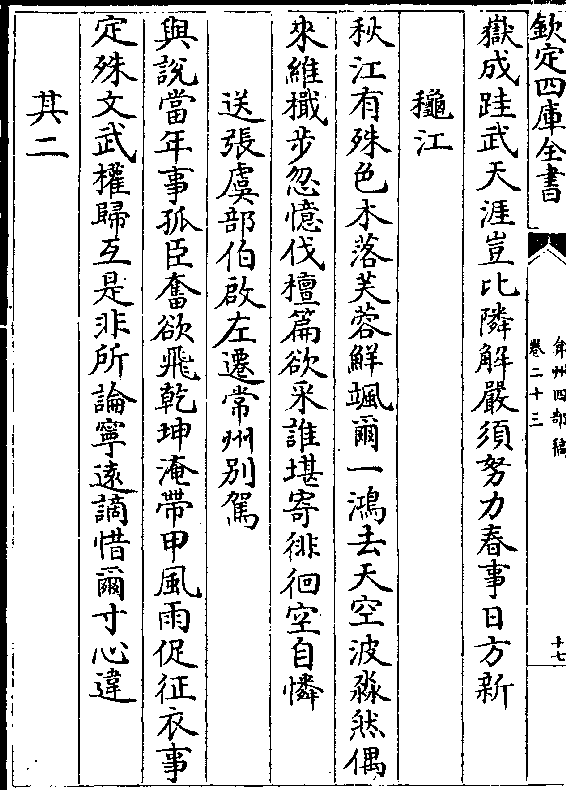 欽定四庫全書
弇州四部稿
卷二十三
十七
嶽成跬武天涯豈比隣解嚴須努力春事日方新
龝江
秋江有殊色木落芙蓉鮮颯爾一鴻去天空波淼然偶
來維檝步忽憶伐檀篇欲采誰堪寄徘徊空自憐
送張虞部伯啟左遷常州别駕
與説當年事孤臣奮欲飛乾坤淹帶甲風雨促征衣事
定殊文武權歸互是非所論寧逺謫惜爾寸心違
其二